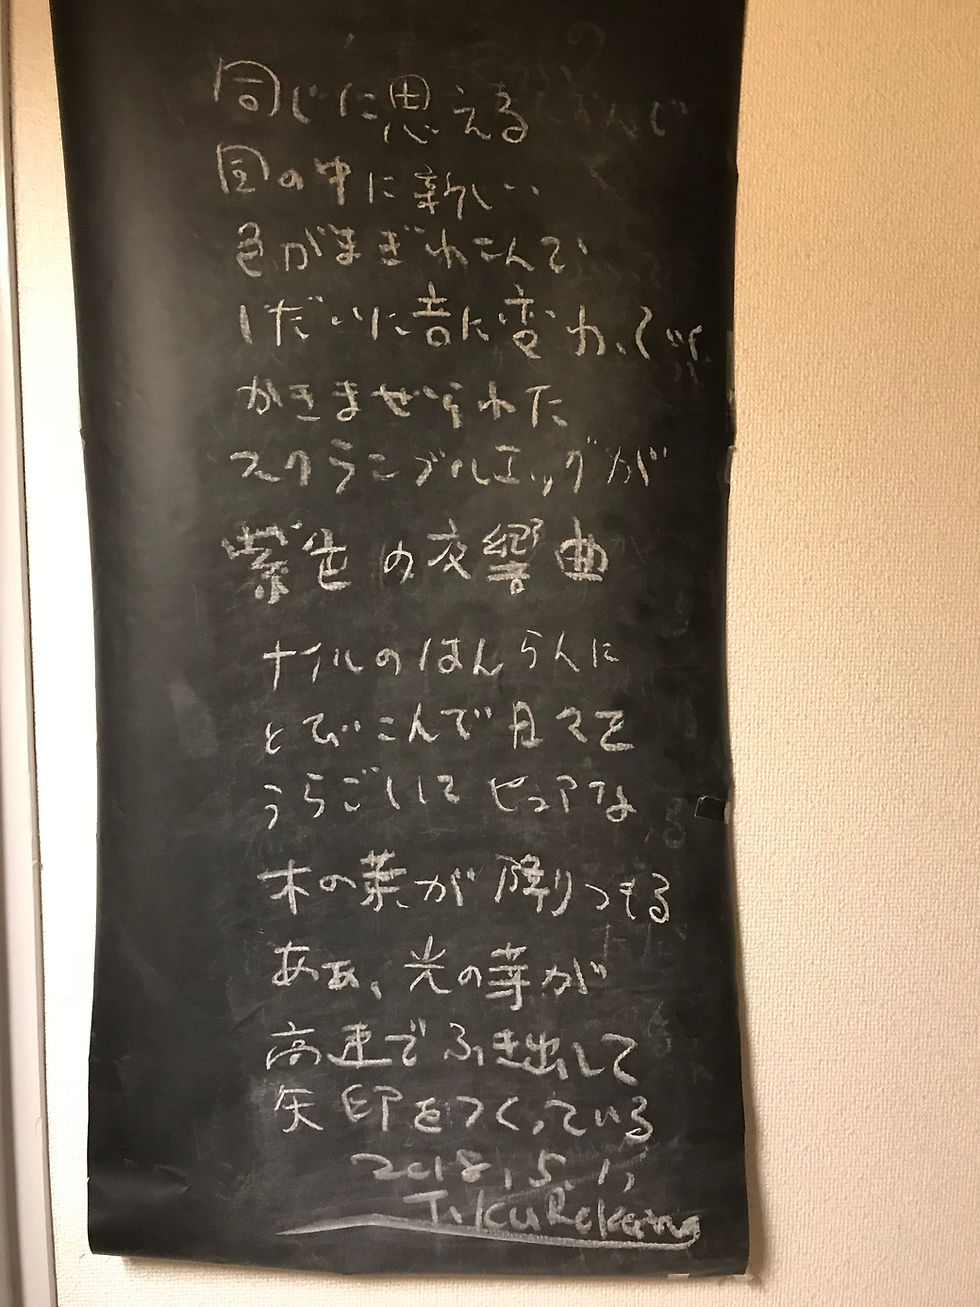 同じに思える
図の中に新しい
色がまぎれこんで
しだいに音に変わって
かきまぜられた
スクランブルエッグが
紫色の交響曲
ナイルのはんらんに
とびこんで日々を
うらごしして ピュアな
木の葉が降りつもる
ああ、光の芽が
高速でふき出して
矢印をつくっている
2018.5.